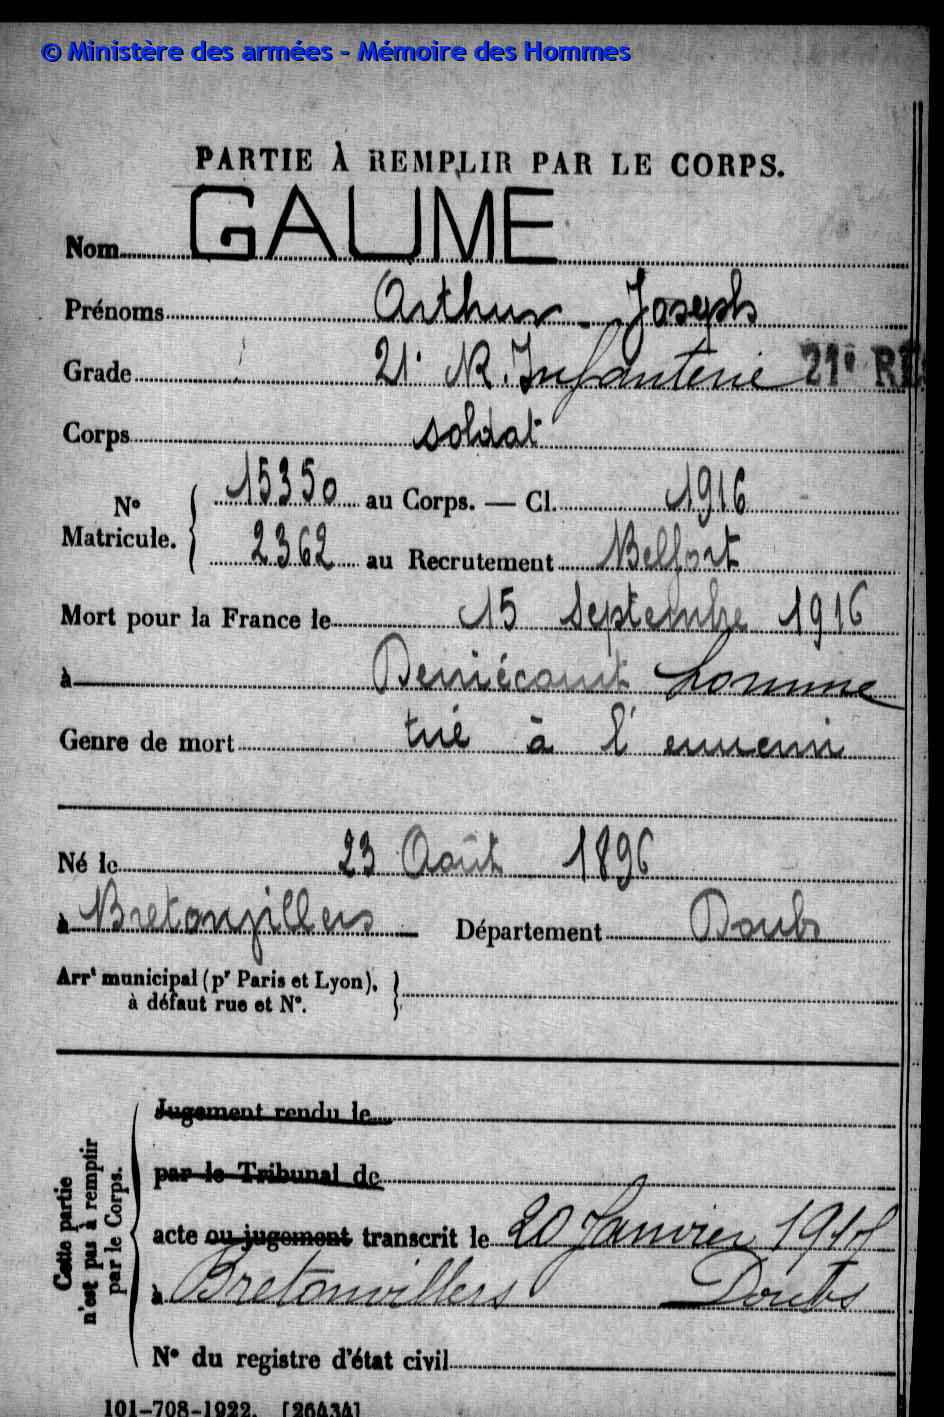 © Ministère des armées - Mémoire des Hommes
PARTIE À REMPLIR PAR LE CORPS.
Nom GAUME
Prénoms Arthur - Joseph
Grade 21e R. Infanterie 21e RE
Corps soldat
N° Matricule. { 15350 au Corps. — Cl. 1916
2362 au Recrutement Belfort
Mort pour la France le 15 Septembre 1916
à Deniécourt Somme
Genre de mort tué à l'ennemi
Né le 23 Août 1896
à Bretonvillers Département Doubs
Arrt municipal (pr Paris et Lyon), à défaut rue et N°. }
Cette partie n'est pas à remplir par le Corps.
Jugement rendu le
par le Tribunal de
acte ou jugement transcrit le 20 Janvier
à Bretonvillers Doubs
N° du registre d'état civil
101-708-1922. [26434]